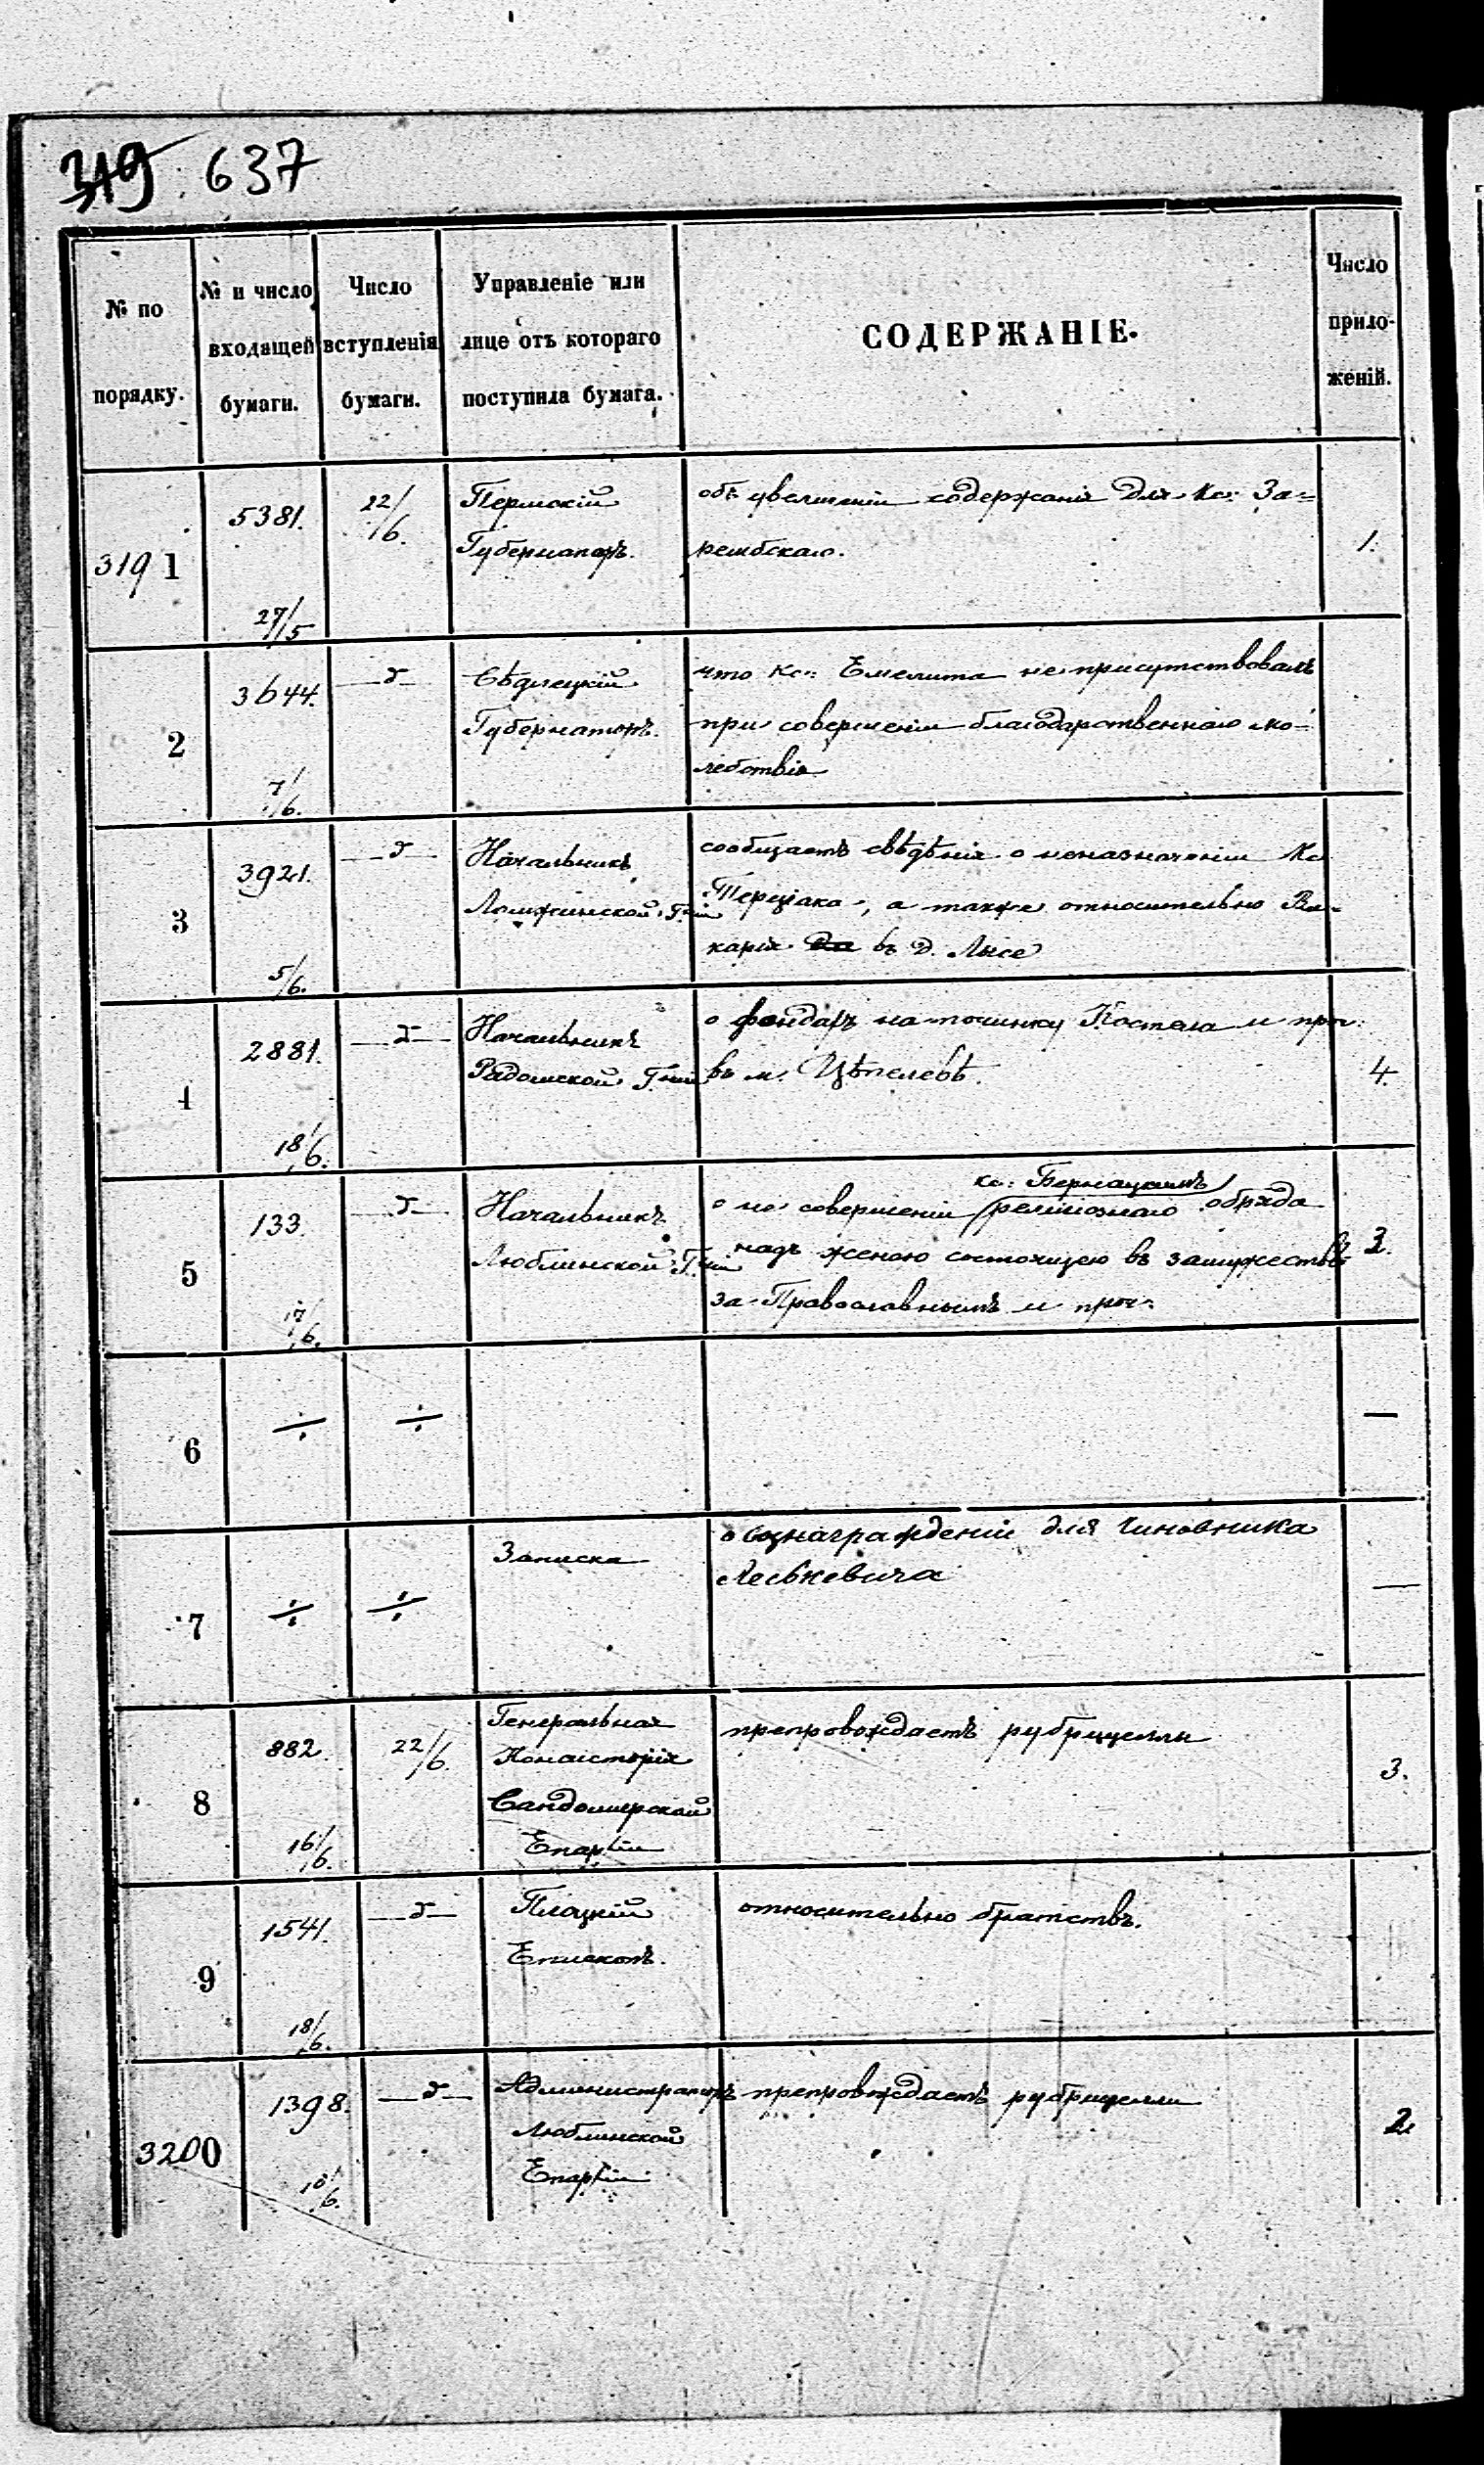 319 637
№ по порядку.
№ и число входящей бумаги.
Число вступленія бумаги.
Управленіе или лице отъ котораго поступила бумага.
СОДЕРЖАНІЕ.
Число прило-женій.
3191
5381.
27/5
22/6.
Пермскій
Губернаторъ.
объ увеличеніи содержанія для Кс: За=
рембскаго.
1.
2
3644.
7/6.
—д—
Сѣдлецкій
Губернаторъ.
что Кс: Емелита не присутствовалъ
при совершеніи благодарственнаго мо-
лебствія
3
3921.
5/6.
—д—
Начальникъ
Ломжинской Г-ніи
сообщаетъ свѣдѣнія о неназначеніи Кс
Терціака, а также относительно Ви-
карія въ д. Лысе
4
2881.
18/6.
—д—
Начальникъ
Радомской Г-ніи
о фондахъ на починку Костела и проч:
въ м. Цѣпелевѣ.
4.
5
133.
17/6.
—д—
Начальникъ
Люблинской Г-ніи
кс: Бернацкимъ
о не совершеніи религіознаго обряда
надъ женою состоящею въ замужествѣ
за Православнымъ и проч.
3.
6
÷
÷
—
7
÷
÷
Записка
о вознагражденіи для Чиновника
Леськевича
—
8
882.
16/6.
22/6.
Генеральная
Консисторія
Сандомирской
Епархіи
препровождаетъ рубрицеллы
3.
9
1541.
18/6.
—д—
Плоцкій
Епископъ.
относительно братствъ.
3200
1398.
18/6.
—д—
Администраторъ
Люблинской
Епархіи
препровождаетъ рубрицеллы
2